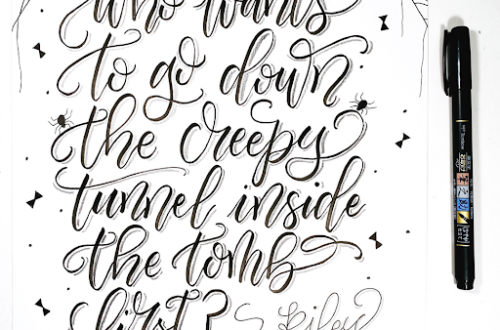 who wants
to go down
the creepy
tunnel inside
the tomb
first? ~Riley